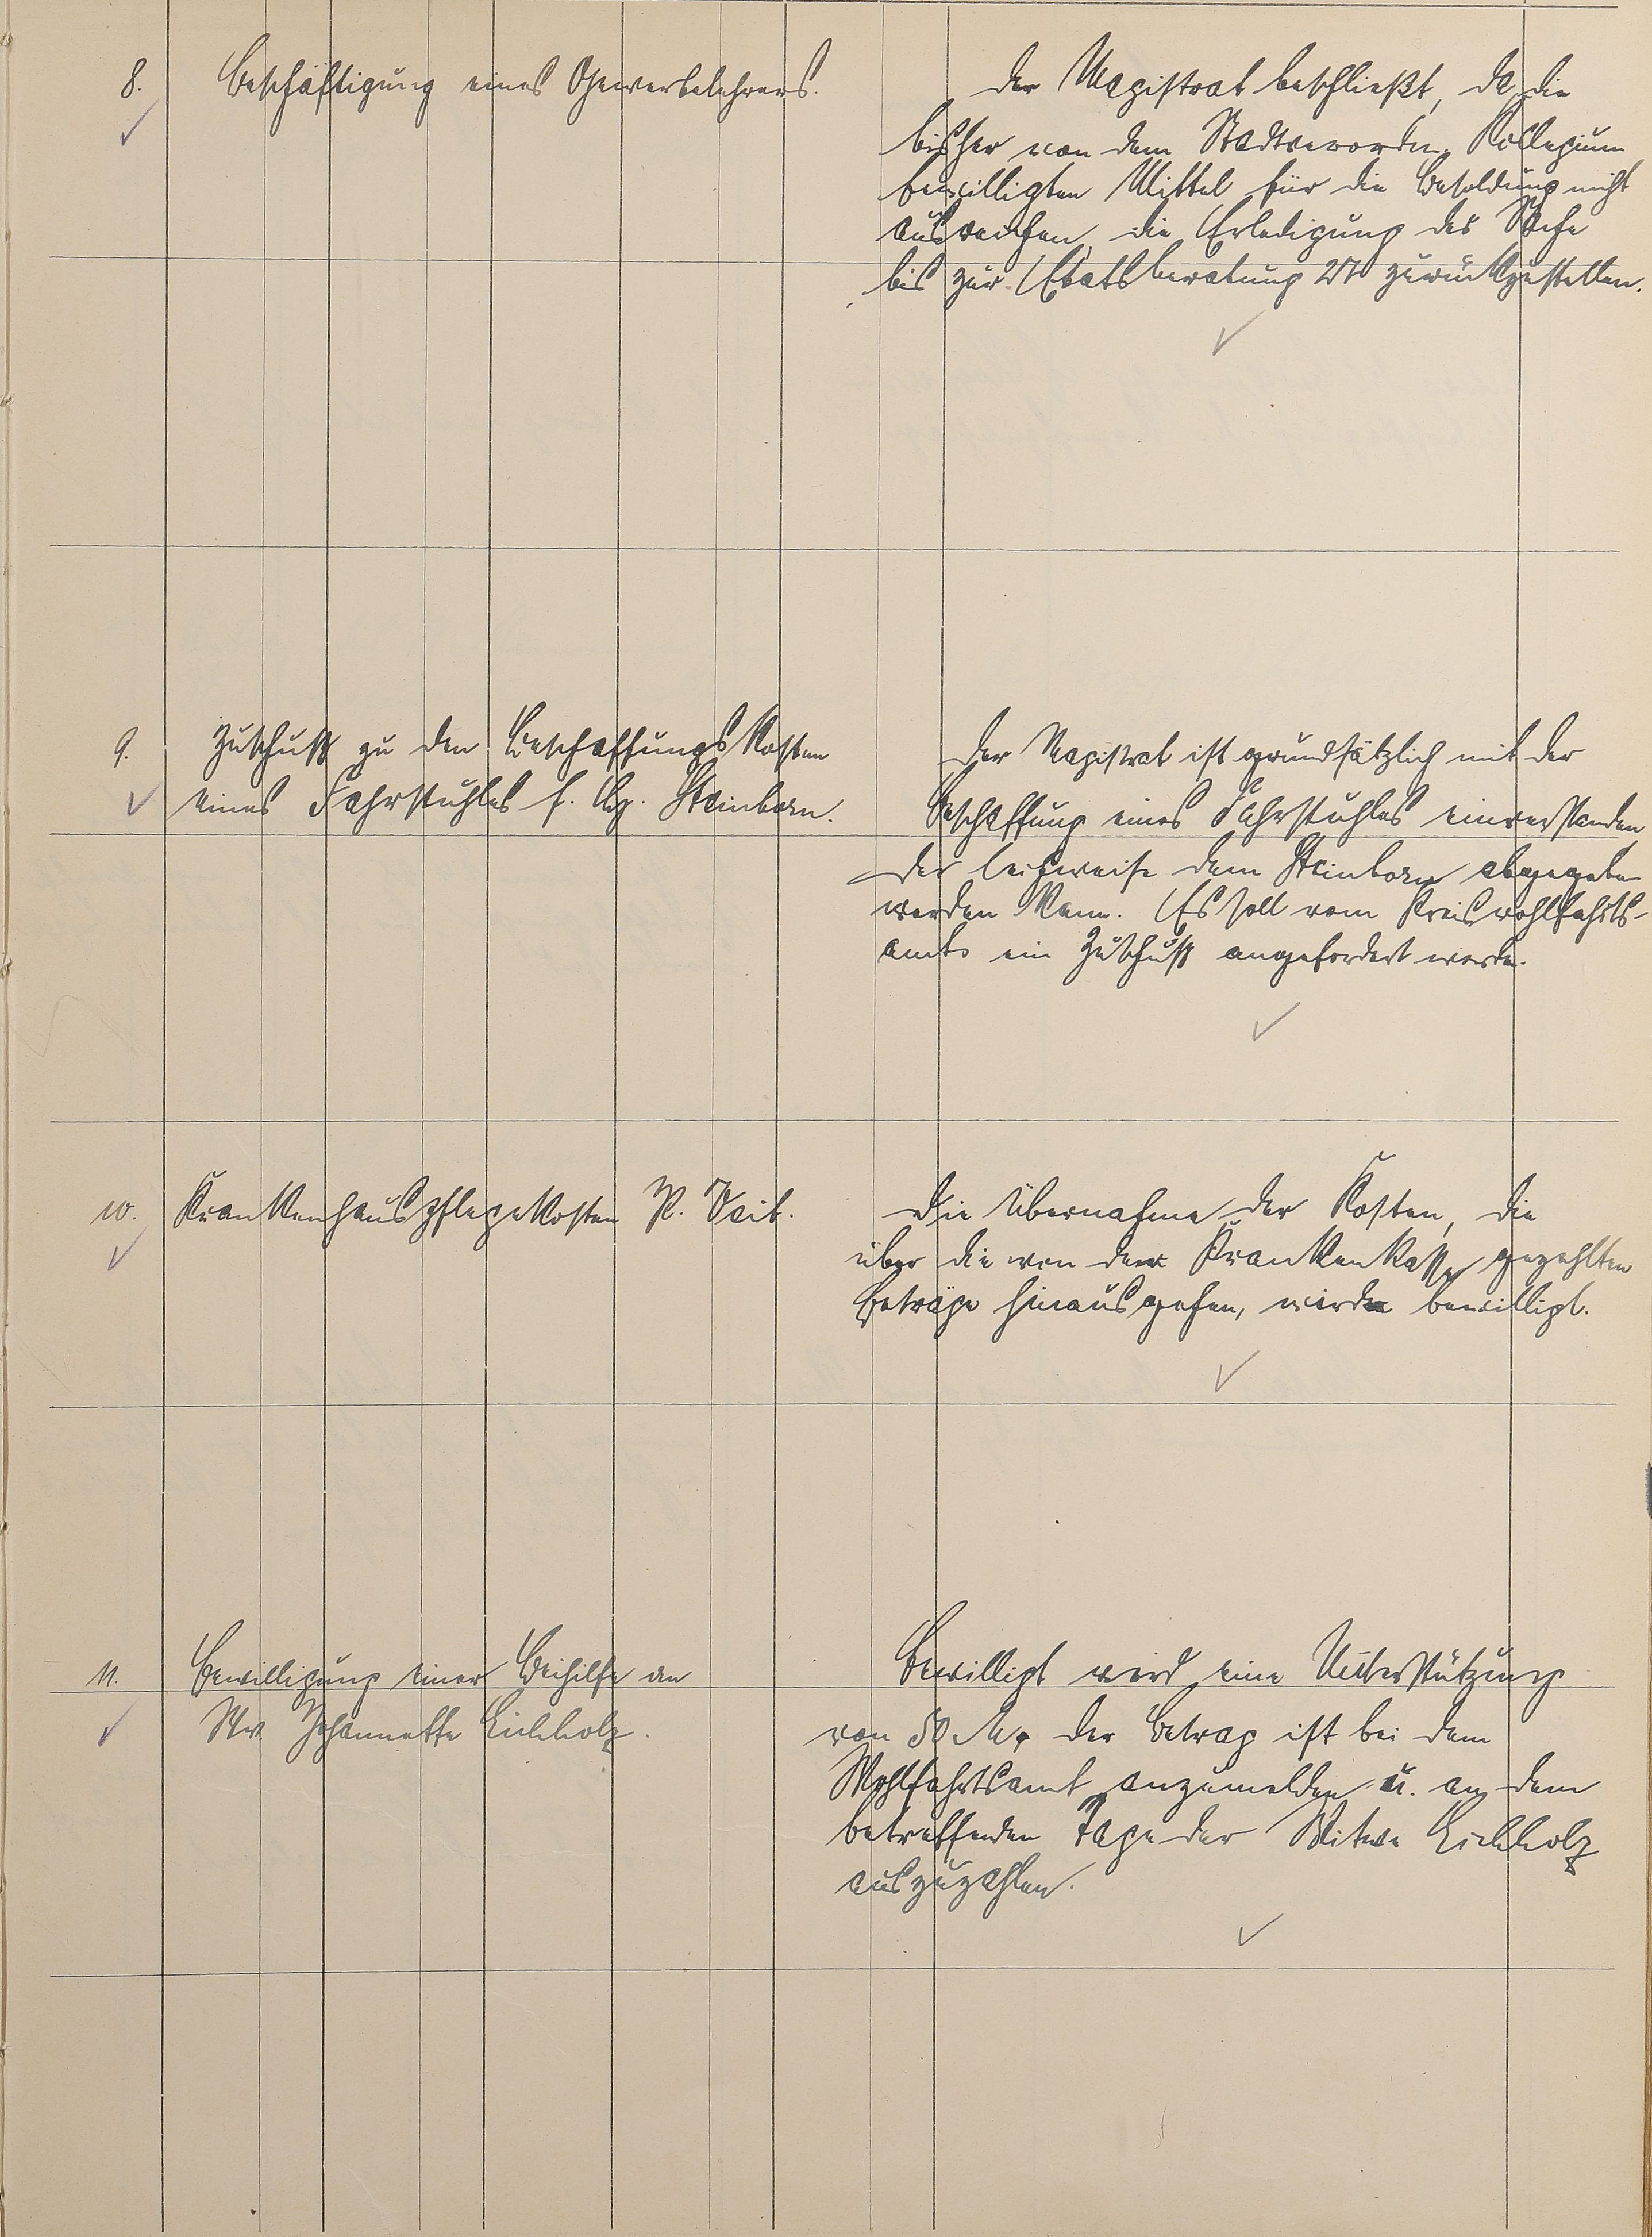 8. Beschäftigung eines Gewerbelehrers.
Der Magistrat beschließt, da die
bisher von dem Stadtverordn. Kollegium
bewilligten Mittel für die Besoldung nicht
ausreichen, die Erledigung der Sache
bis zur Etatsberatung 27 zurückzustellen.
9. Zuschuß zu den Beschaffungskosten
eines Fahrstuhles f. Steinborn.
Der Magistrat ist grundsätzlich mit der
Beschaffung eines Fahrstuhles einverstanden,
der leihweise dem Steinborn abgegeben
werden kann. Es soll vom Kreiswohlfahrts-
amte ein Zuschuß angefordert werden.
10. Krankenhauspflegekosten P. Veit.
Die Übernahme der Kosten, die
über die von der Krankenkasse gezahlten
Beträge hinausgehen, wird bewilligt.
11. Bewilligung einer Beihilfe an
Ww. Johannette Eichholz.
Bewilligt wird eine Unterstützung
von 50 M. Der Betrag ist bei dem
Wohlfahrtsamt anzumelden u. an dem
betreffenden Tage der Witwe Eichholz
auszuzahlen.